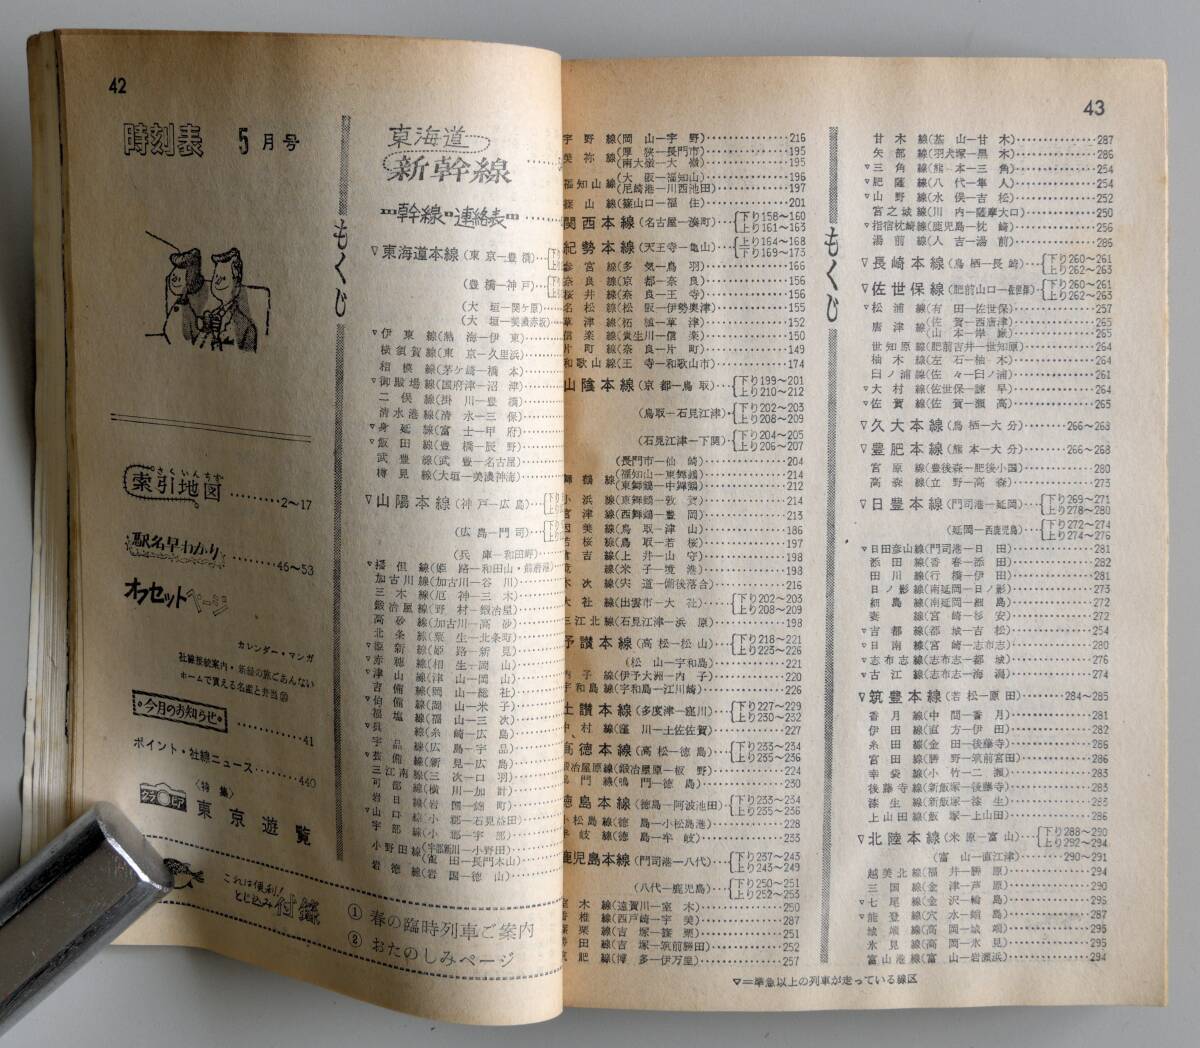 42
時刻表 5月号
もくじ
さくいんちず
索引地図………2~17
駅名早わかり………46~53
オフセットページ
カレンダー・マンガ
社線接続案内・新緑の旅ごあんない
ホームで買える名産と弁当
今月のお知らせ………41
ポイント・社線ニュース………440
〈特集〉
東京遊覧
これは便利!
とじ込み付録
① 春の臨時列車ご案内
② おたのしみページ
東海道
新幹線
幹線連絡表
▽東海道本線(東京―豊橋)
(豊橋―神戸)
(大垣―関ケ原)
(大垣―美濃赤坂)
▽伊東線(熱海―伊東)
横須賀線(東京―久里浜)
相模線(茅ケ崎―橋本)
▽御殿場線(国府津―沼津)
二俣線(掛川―豊橋)
清水港線(清水―三保)
▽身延線(富士―甲府)
▽飯田線(豊橋―辰野)
武豊線(武豊―名古屋)
樽見線(大垣―美濃神海)
▽山陽本線(神戸―広島)
(広島―門司)
(兵庫―和田岬)
▽播但線(姫路―和田山・飾磨港)
加古川線(加古川―谷川)
三木線(厄神―三木)
鍛冶屋線(野村―鍛冶屋)
高砂線(加古川―高砂)
北条線(粟生―北条町)
▽姫新線(姫路―新見)
▽赤穂線(相生―岡山)
▽津山線(津山―岡山)
吉備線(岡山―総社)
▽伯備線(岡山―米子)
福塩線(福山―三次)
▽呉線(糸崎―広島)
宇品線(広島―宇品)
▽芸備線(新見―広島)
三江南線(三次―口羽)
可部線(横川―加計)
岩日線(岩国―錦町)
▽山口線(小郡―石見益田)
宇部線(小郡―宇部)
小野田線(宇部新川―小野田)
(雀田―長門本山)
岩徳線(岩国―徳山)
43
宇野線(岡山―宇野)………216
美祢線(厚狭―長門市)………195
(南大嶺―大嶺)………195
福知山線(大阪―福知山)………196
(尼崎港―川西池田)………197
篠山線(篠山口―福住)………201
関西本線(名古屋―湊町) 下り158~160 上り161~163
紀勢本線(天王寺―亀山) 上り164~168 下り169~173
参宮線(多気―鳥羽)………166
奈良線(京都―奈良)………155
桜井線(奈良―王寺)………156
名松線(松阪―伊勢奥津)………155
草津線(柘植―草津)………152
信楽線(貴生川―信楽)………150
片町線(奈良―片町)………149
和歌山線(王寺―和歌山市)………174
山陰本線(京都―鳥取) 下り199~201 上り210~212
(鳥取―石見江津) 下り202~203 上り208~209
(石見江津―下関) 下り204~205 上り206~207
(長門市―仙崎)………204
舞鶴線(福知山―東舞鶴)………214
(東舞鶴―中舞鶴)………212
小浜線(東舞鶴―敦賀)………214
宮津線(西舞鶴―豊岡)………213
因美線(鳥取―津山)………186
若桜線(鳥取―若桜)………197
倉吉線(上井―山守)………198
境線(米子―境港)………198
木次線(宍道―備後落合)………216
大社線(出雲市―大社) 下り202~203 上り208~209
三江北線(石見江津―浜原)………198
予讃本線(高松―松山) 下り218~221 上り223~226
(松山―宇和島)………221
内子線(伊予大洲―内子)………220
宇和島線(宇和島―江川崎)………226
土讃本線(多度津―窪川) 下り227~229 上り230~232
中村線(窪川―土佐佐賀)………227
高徳本線(高松―徳島) 下り233~234 上り235~236
鍛冶屋原線(鍛冶屋原―板野)………224
鳴門線(鳴門―徳島)………230
徳島本線(徳島―阿波池田) 下り233~234 上り235~236
小松島線(徳島―小松島港)………228
牟岐線(徳島―牟岐)………233
鹿児島本線(門司港―八代) 下り237~243 上り245~249
(八代―鹿児島) 下り250~251 上り252~253
室木線(遠賀川―室木)………250
香椎線(西戸崎―宇美)………287
篠栗線(吉塚―篠栗)………251
勝田線(吉塚―筑前勝田)………252
筑肥線(博多―伊万里)………257
もくじ
甘木線(基山―甘木)………287
矢部線(羽犬塚―黒木)………286
▽三角線(熊本―三角)………254
▽肥薩線(八代―隼人)………254
▽山野線(水俣―吉松)………252
宮之城線(川内―薩摩大口)………250
▽指宿枕崎線(鹿児島―枕崎)………256
湯前線(人吉―湯前)………286
▽長崎本線(鳥栖―長崎) 下り260~261 上り262~263
▽佐世保線(肥前山口―佐世保) 下り260~261 上り262~263
▽松浦線(有田―佐世保)………257
唐津線(佐賀―西唐津)………265
(山本―岸嶽)………265
世知原線(肥前吉井―世知原)………264
柚木線(左石―柚木)………264
臼ノ浦線(佐々―臼ノ浦)………261
▽大村線(佐世保―諫早)………264
▽佐賀線(佐賀―瀬高)………265
▽久大本線(鳥栖―大分)………266~268
▽豊肥本線(熊本―大分)………266~268
宮原線(豊後森―肥後小国)………280
高森線(立野―高森)………273
▽日豊本線(門司港―延岡) 下り269~271 上り278~280
(延岡―西鹿児島) 下り272~274 上り274~276
▽日田彦山線(門司港―日田)………281
添田線(香春―添田)………282
田川線(行橋―伊田)………282
日ノ影線(南延岡―日ノ影)………273
細島線(南延岡―細島)………272
妻線(宮崎―杉安)………272
▽吉都線(都城―吉松)………254
▽日南線(宮崎―志布志)………280
▽志布志線(志布志―都城)………276
▽古江線(志布志―海潟)………274
▽筑豊本線(若松―原田)………284~285
香月線(中間―香月)………281
伊田線(直方―伊田)………282
糸田線(金田―後藤寺)………286
宮田線(勝野―筑前宮田)………286
幸袋線(小竹―二瀬)………283
後藤寺線(新飯塚―後藤寺)………283
漆生線(新飯塚―漆生)………286
上山田線(飯塚―上山田)………286
▽北陸本線(米原―富山) 下り288~290 上り292~294
(富山―直江津)………290~291
越美北線(福井―勝原)………290
三国線(金津―芦原)………290
▽七尾線(金沢―輪島)………296
▽能登線(穴水―蛸島)………287
城端線(高岡―城端)………295
氷見線(高岡―氷見)………295
富山港線(富山―岩瀬浜)………294
▽=準急以上の列車が走っている線区